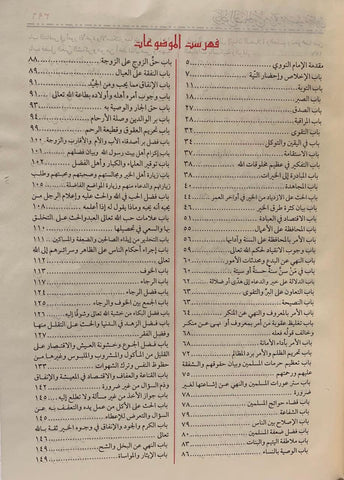 فهرست الموضوعات
مقدمة الإمام النووي ٥
باب الإخلاص وإحضار النية ٧
باب التوبة ١١
باب الصبر ١٩
باب الصدق
باب المراقبة ٢٨
باب التقوى ٣١
باب في اليقين والتوكل ٣٢
باب الاستقامة
باب التفكر في عظيم مخلوقات الله ٣٨
باب المبادرة إلى الخيرات ٣٨
باب المجاهدة ٤٠
باب الحث على الازدياد من الخير في أواخر العمر ٤٤
باب بيان كثرة طرق الخير
باب الاقتصاد في العبادة ٥١
باب المحافظة على الأعمال
باب الأمر بالمحافظة على السنة وآدابها ٥٦
باب وجوب الانقياد لحكم الله تعالى
باب النهي عن البدع ومحدثات الأمور ٦٠
باب من سن سنة حسنة أو سيئة ٦٠
باب الدلالة على خير والدعاء إلى هدى أو ضلالة ٦٢
باب التعاون على البر والتقوى
باب النصيحة ٦٣
باب الأمر بالمعروف والنهي عن المنكر ٦٤
باب تغليظ عقوبة من أمر بمعروف أو نهى عن منكر
وخالف قوله فعله ٦٨
باب الأمر بأداء الأمانة ٦٨
باب تحريم الظلم والأمر برد المظالم ٧٢
باب تعظيم حرمات المسلمين وبيان حقوقهم والشفقة
عليهم ورحمتهم ٧٥
باب ستر عورات المسلمين والنهي عن إشاعتها لغير
باب قضاء حوائج المسلمين ٧٨
باب الشفاعة ٧٩
باب الإصلاح بين الناس ٧٩
باب فضل ضعفة المسلمين ٨٠
باب ملاطفة اليتيم والبنات ٨٣
باب الوصية بالنساء ٨٦
باب حق الزوج على الزوجة ٨٨
باب النفقة على العيال
باب الإنفاق مما يحب ومن الجيد
باب وجوب أمره أهله وأولاده بطاعة الله تعالى ٩١
باب حق الجار والوصية به
باب بر الوالدين وصلة الأرحام ٩٤
باب تحريم العقوق وقطيعة الرحم ٩٩
باب فضل بر أصدقاء الأب والأم والأقارب والزوجة ١٠٠
باب إكرام أهل بيت رسول الله وبيان فضلهم ١٠٢
باب توقير العلماء والكبار وأهل الفضل
باب زيارة أهل الخير ومجالستهم وصحبتهم ومحبتهم وطلب
زيارتهم والدعاء منهم وزيارة المواضع الفاضلة ١٠٥
باب فضل الحب في الله والحث عليه وإعلام الرجل من
يحبه أنه يحبه وماذا يقول له إذا أعلمه ١٠٨
باب علامات حب الله تعالى العبد والحث على التخلق
بها والسعي في تحصيلها
باب التحذير من إيذاء الصالحين والضعفة والمساكين ١١١
باب إجراء أحكام الناس على الظاهر وسرائرهم إلى الله
تعالى ١١٢
باب الخوف ١١٣
باب الرجاء
باب فضل الرجاء ١٢٤
باب الجمع بين الخوف والرجاء ١٢٥
باب فضل البكاء من خشية الله تعالى وشوقا إليه ١٢٥
باب فضل الزهد في الدنيا والحث على التقلل منها
وفضل الفقر ١٢٧
باب فضل الجوع وخشونة العيش والاقتصار على
القليل من المأكول والمشروب والملبوس وغيرها من
حظوظ النفس وترك الشهوات ١٣٣
باب القناعة والعفاف والاقتصاد في المعيشة والإنفاق
وذم السؤال من غير ضرورة ١٤٢
باب جواز الأخذ من غير مسألة ولا تطلع إليه ١٤٥
باب الحث على الأكل من عمل يده والتعفف به عن
السؤال والتعرض للإعطاء ١٤٥
باب الكرم والجود والإنفاق في وجوه الخير ثقة بالله
تعالى ١٤٦
باب النهي عن البخل والشح ١٤٩
باب الإيثار والمواساة ١٤٩